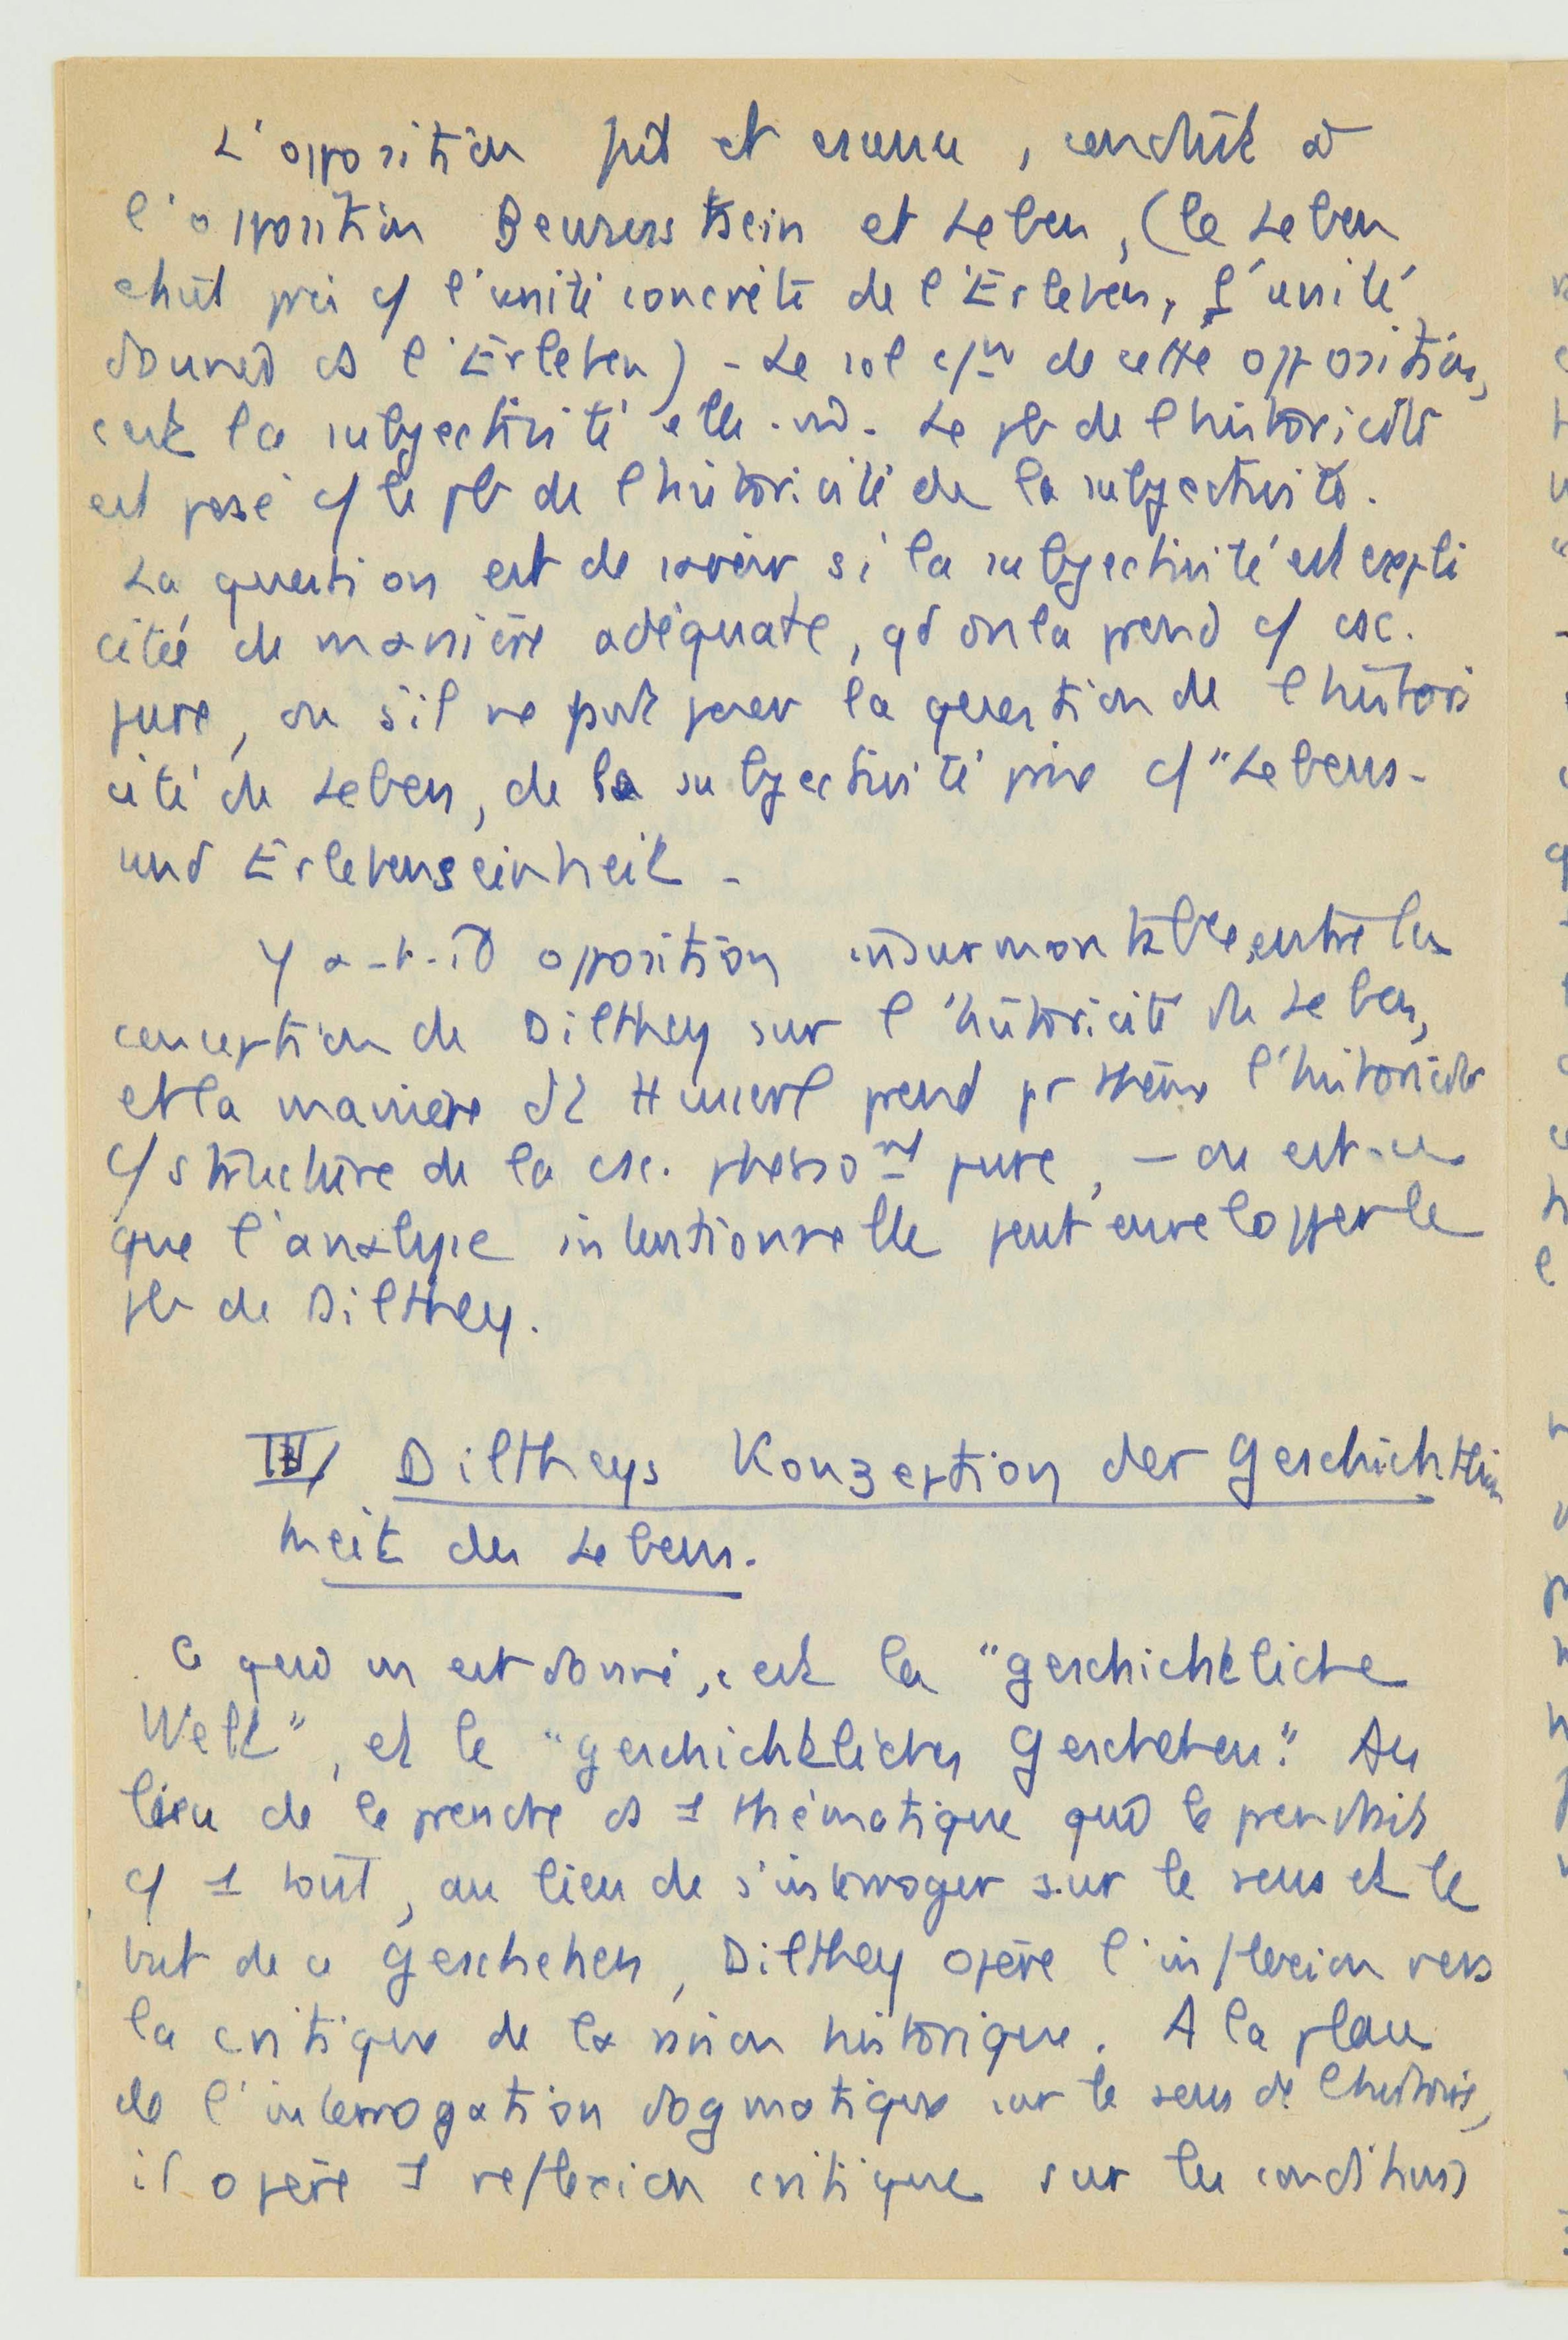 L'opposition fait et essence, conduit à
l'opposition Bewusstsein et Leben, (le Leben
étant pris c/ l'unité concrète de l'Erleben, l'unité
donnée ds l'Erleben) - Le sol c/un de cette opposition,
c'est la subjectivité elle-m. Le pb de l'historicité
est posé c/ le pb de l'historicité de la subjectivité.
La question est de savoir si la subjectivité est expli
citée de manière adéquate, qd on la prend c/ csc.
pure, ou s'il ne faut poser la question de l'histori
cité du Leben, de la subjectivité prise c/ "Lebens-
und Erlebenseinheit -
Y a-t-il opposition insurmontable, entre la
conception de Dilthey sur l'historicité du Leben,
et la manière dt Husserl prend pr thème l'historicité
c/ structure de la csc. phéno nel pure, - ou est-ce
que l'analyse intentionnelle peut envelopper le
pb de Dilthey.
III/ Diltheys Konzeption der Geschichtlich
keit des Lebens.
Ce qui ns est donné, c'est la "geschichtliche
Welt", et le "geschichtliches Geschehen". Au
lieu de le prendre ds 1 thématique qui le prendrait
c/ 1 tout, au lieu de s'interroger sur le sens et le
but de ce Geschehen, Dilthey opère l'inflexion vers
la critique de la raison historique. A la place
de l'interrogation dogmatique sur le sens de l'histoire,
il opère 1 reflexion critique sur les conditions